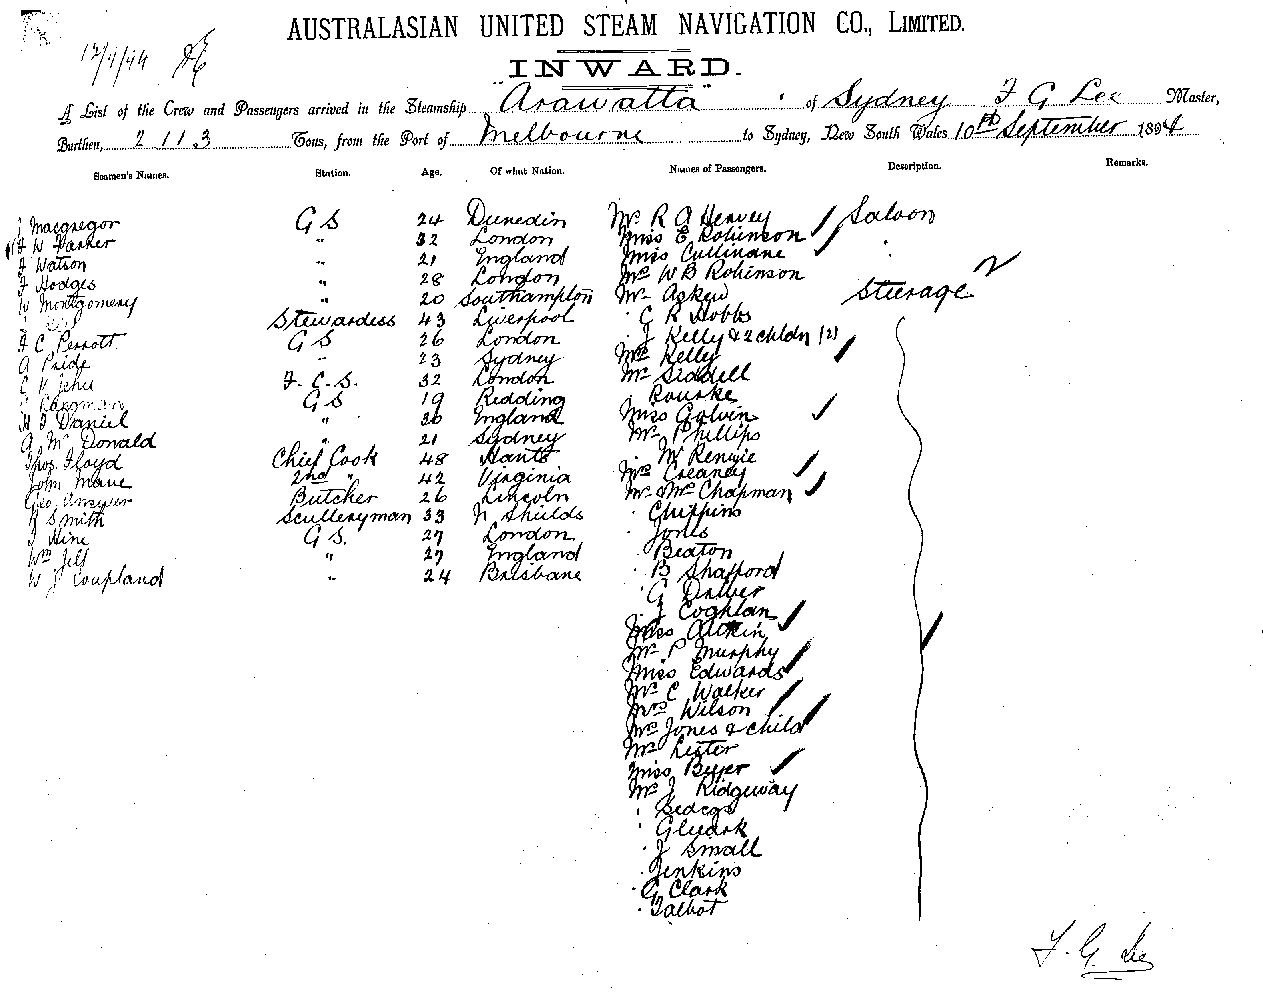 AUSTRALASIAN UNITED STEAM NAVIGATION CO., LIMITED.
INWARD.
A List of the Crew and Passengers arrived in the Steamship "Arawatta" of Sydney F G Lee Master,
Burthen, 2113 Tons, from the Port of Melbourne to Sydney, New South Wales 10th September 1894
Seamen's Names. Station. Age. Of what Nation. Names of Passengers. Description. Remarks.
J Macgregor G S 24 Dunedin Mr R A Hervey Saloon
W Parker " 32 London Miss E Robinson
Watson " 21 England Miss Cullinane
F Hodges " 28 London Mr W B Robinson
W Montgomery " 20 Southampton Mr Askew Steerage
Stewardess 43 Liverpool " C R Hobbs
F C Perrott G S 26 London " J Kelly & 2 chldn (2)
A Pride " 23 Sydney Mrs Kelly
F. C. S. 32 London Mr Siddell
G S 19 Redding " Rourke
Daniel " 30 England Miss Galvin
A McDonald " 21 Sydney Mr Phillips
Thos. Floyd Chief Cook 48 Hants " W Renwie
John Mane 2nd " 42 Virginia Mrs Creaney
Geo Butcher 26 Lincoln Mr Mc Chapman
R Smith Sculleryman 33 N Shields " Chippins
J Hine G S. 27 London " Jones
Wm Jelf " 27 England " Beaton
W J Coupland " 24 Brisbane " B Shafford
" G
" J Coghlan
Miss Aitkin
Mr P Murphy
Miss Edwards
Mr C Walker
Mrs Wilson
Mrs Jones & child
Mr Lester
Miss Beyer
Mr J Ridgeway
" J Small
" Jenkins
" G Clark
" Talbot
F. G. Lee